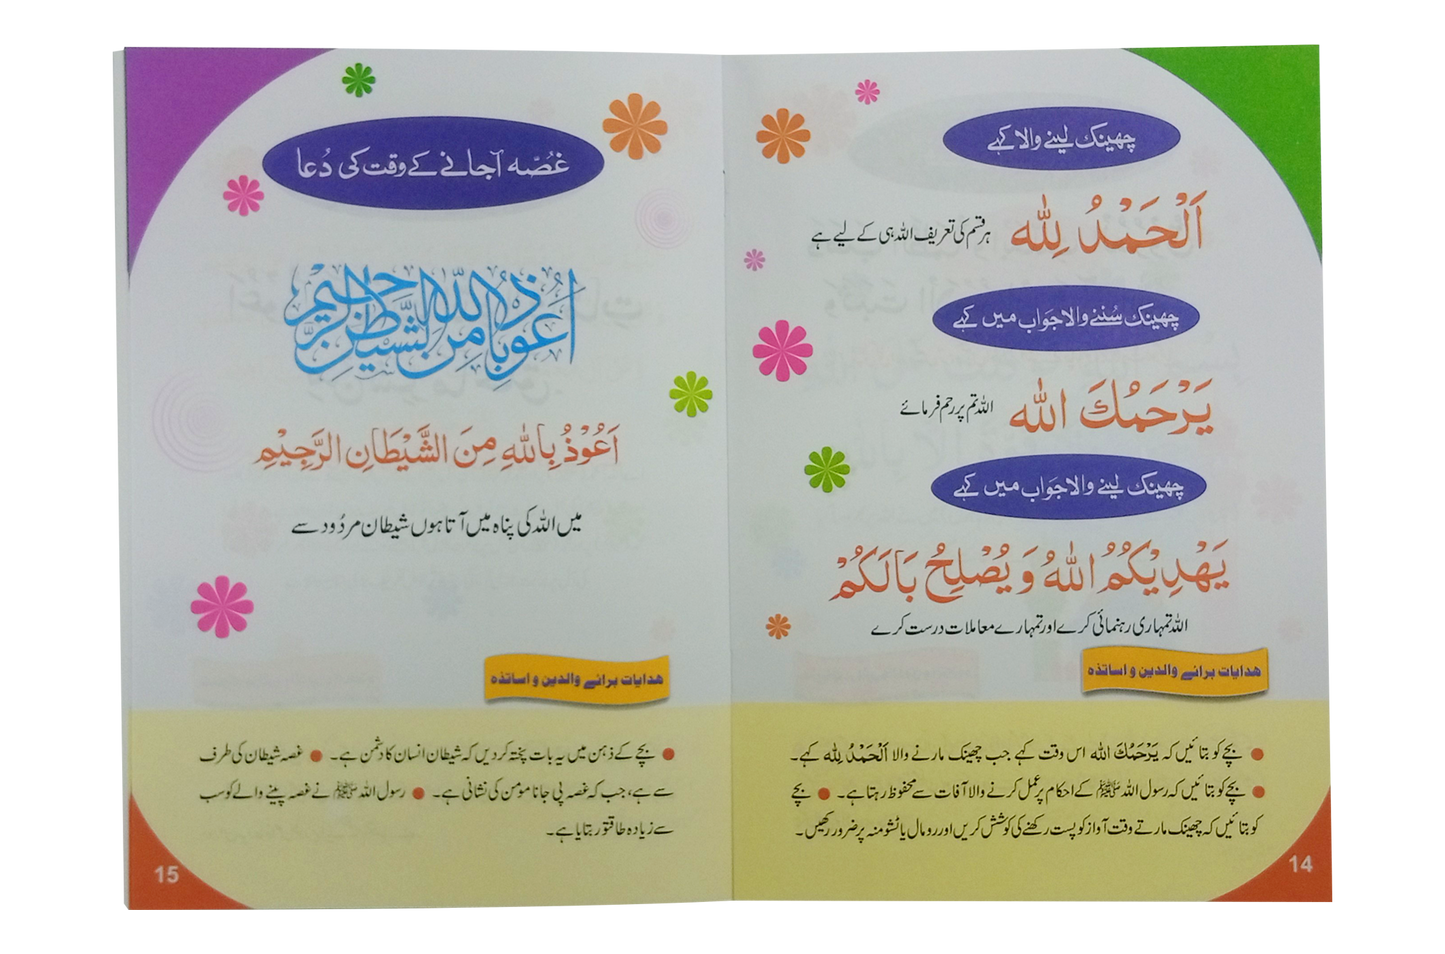 چھینک لینے والا کہے
اَلْحَمْدُ لِلّٰه ہر قسم کی تعریف اللہ ہی کے لیے ہے
چھینک سُننے والا جَواب میں کہے
یَرْحَمُكَ اللّٰه اللہ تم پر رحم فرمائے
چھینک لینے والا جَواب میں کہے
یَهْدِیْکُمُ اللّٰهُ وَ یُصْلِحُ بَالَکُمْ
اللہ تمہاری رہنمائی کرے اور تمہارے معاملات درست کرے
هدایات برائے والدین و اساتذہ
● بچے کو بتائیں کہ یَرْحَمُكَ اللّٰه اس وقت کہے جب چھینک مارنے والا اَلْحَمْدُ لِلّٰه کہے۔
● بچے کو بتائیں کہ رسول اللہ ﷺ کے احکام پر عمل کرنے والا آفات سے محفوظ رہتا ہے۔ ● بچے
کو بتائیں کہ چھینک مارتے وقت آواز کو پست رکھنے کی کوشش کریں اور رومال یا ٹشو منہ پر ضرور رکھیں۔
14
غُصّہ آ جانے کے وقت کی دُعا
اَعُوذُ بِاللّٰهِ مِنَ الشَّیْطٰنِ الرَّجِیْمِ
اَعُوْذُ بِاللّٰهِ مِنَ الشَّیْطَانِ الرَّجِیْمِ
میں اللہ کی پناہ میں آتا ہوں شیطان مردُود سے
هدایات برائے والدین و اساتذہ
● بچے کے ذہن میں یہ بات پختہ کر دیں کہ شیطان انسان کا دشمن ہے۔ ● غصہ شیطان کی طرف
سے ہے، جب کہ غصہ پی جانا مؤمن کی نشانی ہے۔ ● رسول اللہ ﷺ نے غصہ پینے والے کو سب
سے زیادہ طاقتور بتایا ہے۔
15